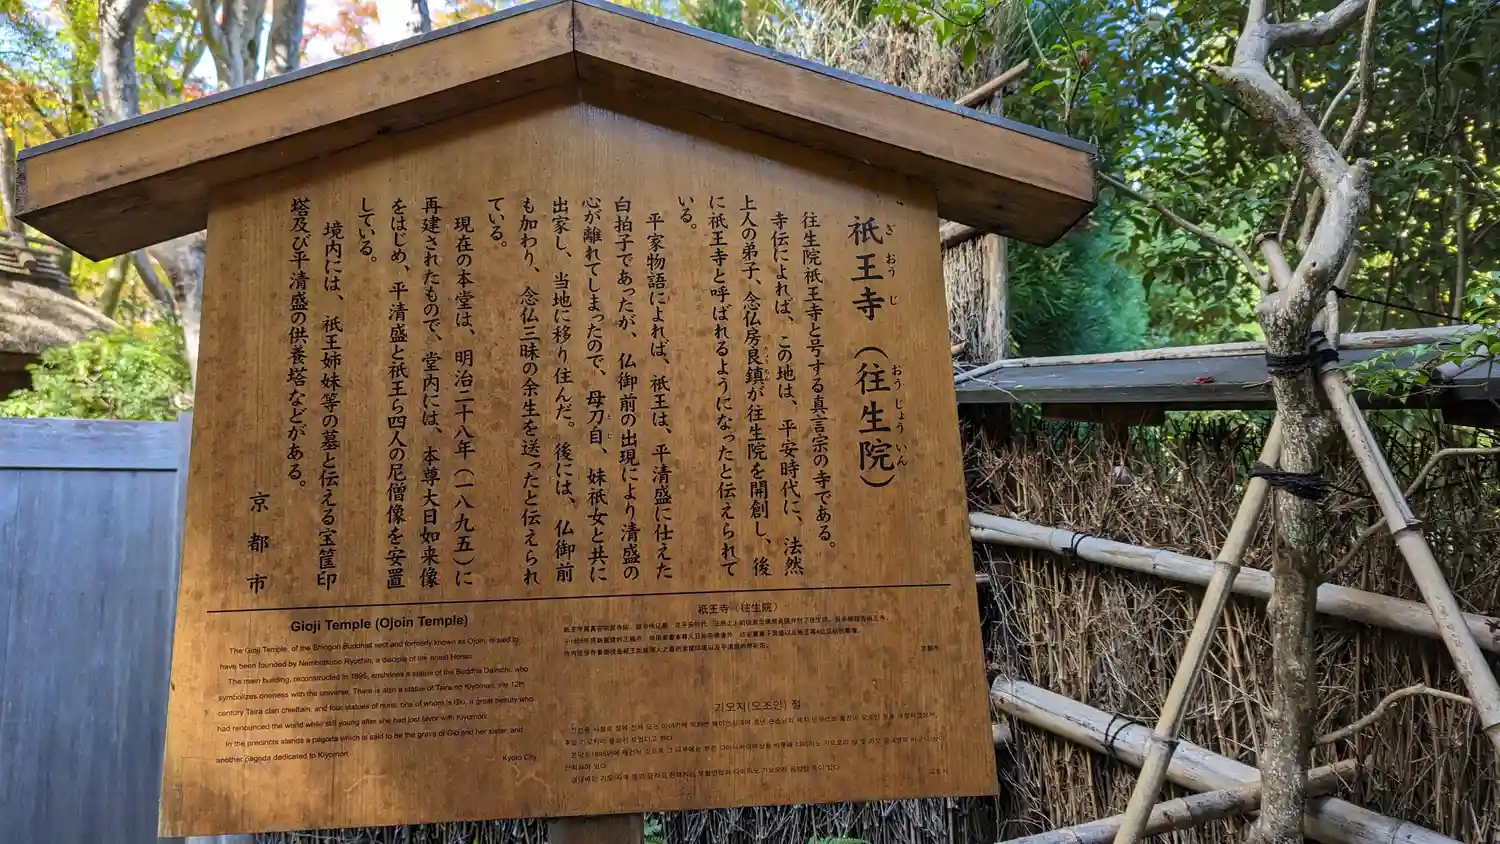 祇王寺（往生院）
ぎおうじ
おうじょういん
往生院祇王寺と号する真言宗の寺である。
寺伝によれば、この地は、平安時代に、法然
上人の弟子、念仏房良鎮が往生院を開創し、後
に祇王寺と呼ばれるようになったと伝えられて
いる。
平家物語によれば、祇王は、平清盛に仕えた
白拍子であったが、仏御前の出現により清盛の
心が離れてしまったので、母刀自、妹祇女と共に
とじ
出家し、当地に移り住んだ。後には、仏御前
も加わり、念仏三昧の余生を送ったと伝えられ
ている。
現在の本堂は、明治二十八年（一八九五）に
再建されたもので、堂内には、本尊大日如来像
をはじめ、平清盛と祇王ら四人の尼僧像を安置
している。
境内には、祇王姉妹等の墓と伝える宝筐印
塔及び平清盛の供養塔などがある。
京都市
Gioji Temple (Ojoin Temple)
The Gioji Temple, of the Shingon Buddhist sect and formerly known as Ojoin, is said to
have been founded by Nembutsubo Ryochin, a disciple of the priest Honen.
The main building, reconstructed in 1895, enshrines a statue of the Buddha Dainichi, who
symbolizes oneness with the universe. There is also a statue of Taira no Kiyomori, the 12th
century Taira clan chieftain, and four statues of nuns, one of whom is Gio, a great beauty who
had renounced the world while still young after she had lost favor with Kiyomori.
In the precincts stands a pagoda which is said to be the grave of Gio and her sister, and
another pagoda dedicated to Kiyomori.
Kyoto City
祇王寺（往生院）
京都市
기오지(오조인) 절
교토시